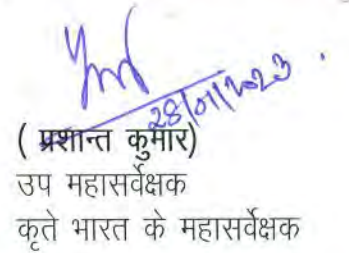 28/01/2023
( प्रशान्त कुमार)
उप महासर्वेक्षक
कृते भारत के महासर्वेक्षक